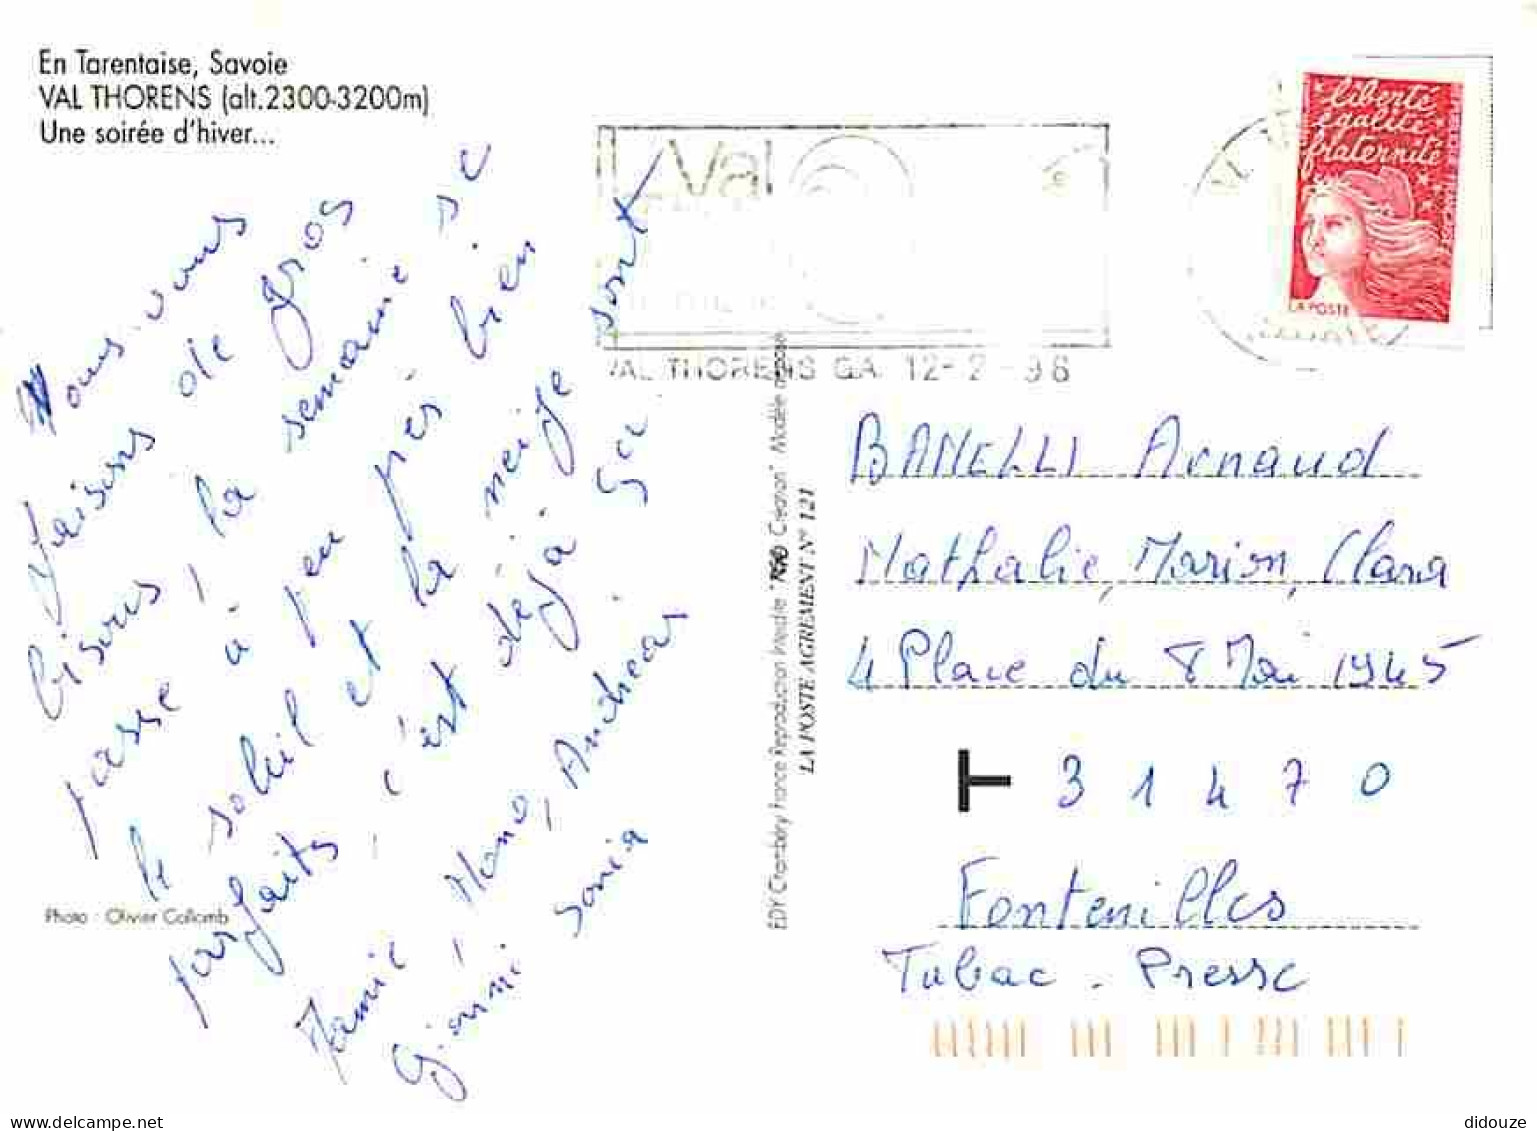 En Tarentaise, Savoie
VAL THORENS (alt.2300-3200m)
Une soirée d'hiver...
Nous vous
faisons de gros
bisous, la semaine se
passe à peu près bien
le soleil et la neige sont
parfaits, c'est déjà ça
Mamie, Nono, Andréas
Gimmi Sonia
Photo : Olivier Collomb
Val
VAL THORENS GA 12-2-98
liberté
égalité
fraternité
LA POSTE
EDY Chambéry France Reproduction interdite "Création" Modèle déposé
LA POSTE AGREMENT N° 121
BANELLI Arnaud
Nathalie, Marion, Clara
4 Place du 8 Mai 1945
31470
Fontenilles
Tabac - Presse
delcampe.net
didouze